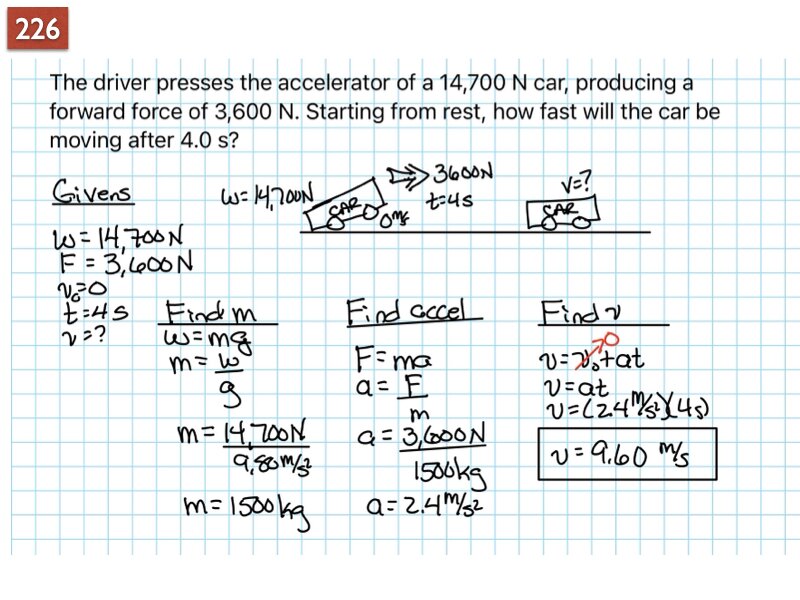 226
The driver presses the accelerator of a 14,700 N car, producing a
forward force of 3,600 N. Starting from rest, how fast will the car be
moving after 4.0 s?
Givens
w = 14,700N
F = 3,600N
v₀=0
t=4s
v=?
w=14,700N
CAR
0 m/s
3600N
t=4s
v=?
CAR
Find m
w=mg
m= w/g
m= 14,700N / 9.80 m/s²
m=1500kg
Find accel
F=ma
a= F/m
a= 3,600N / 1500kg
a=2.4 m/s²
Find v
v=v₀+at
0
v=at
v=(2.4 m/s²)(4s)
v=9.60 m/s